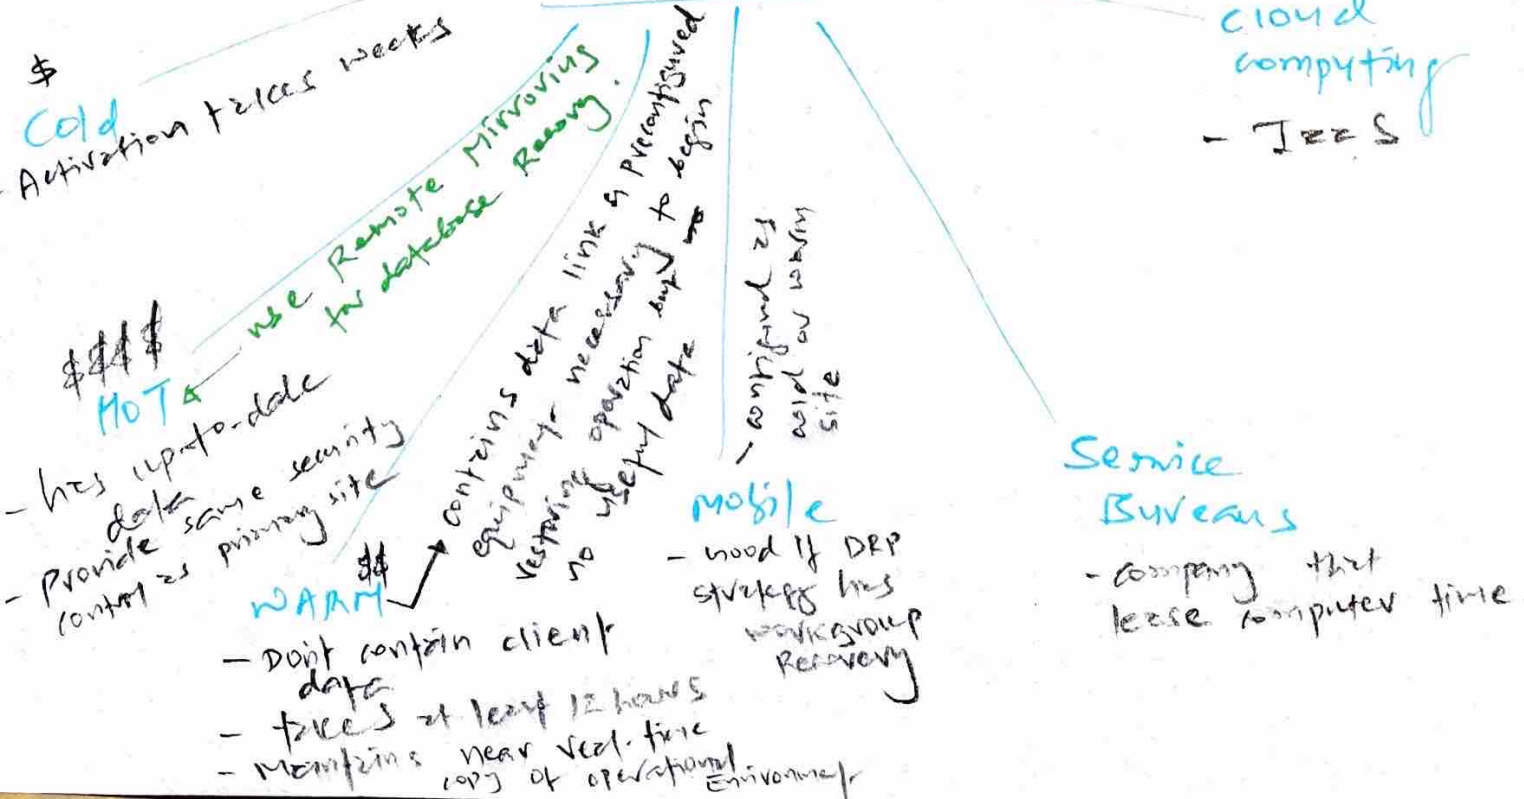 $
Cold
- Activation takes weeks
use Remote Mirroring
for database Recovery.
$$$$
HOT
- has up-to-date
data
- Provide same security
control as primary site
$$
WARM
contains data link & preconfigured
equipment necessary to begin
restoring operation but
no useful data
- Don't contain client
data
- takes at least 12 hours
- Maintains near real-time
copy of operational Environment
- configured as
cold or warm
site
Mobile
- Good if DRP
strategy has
workgroup
Recovery
Service
Bureaus
- company that
lease computer time
cloud
computing
- IaaS